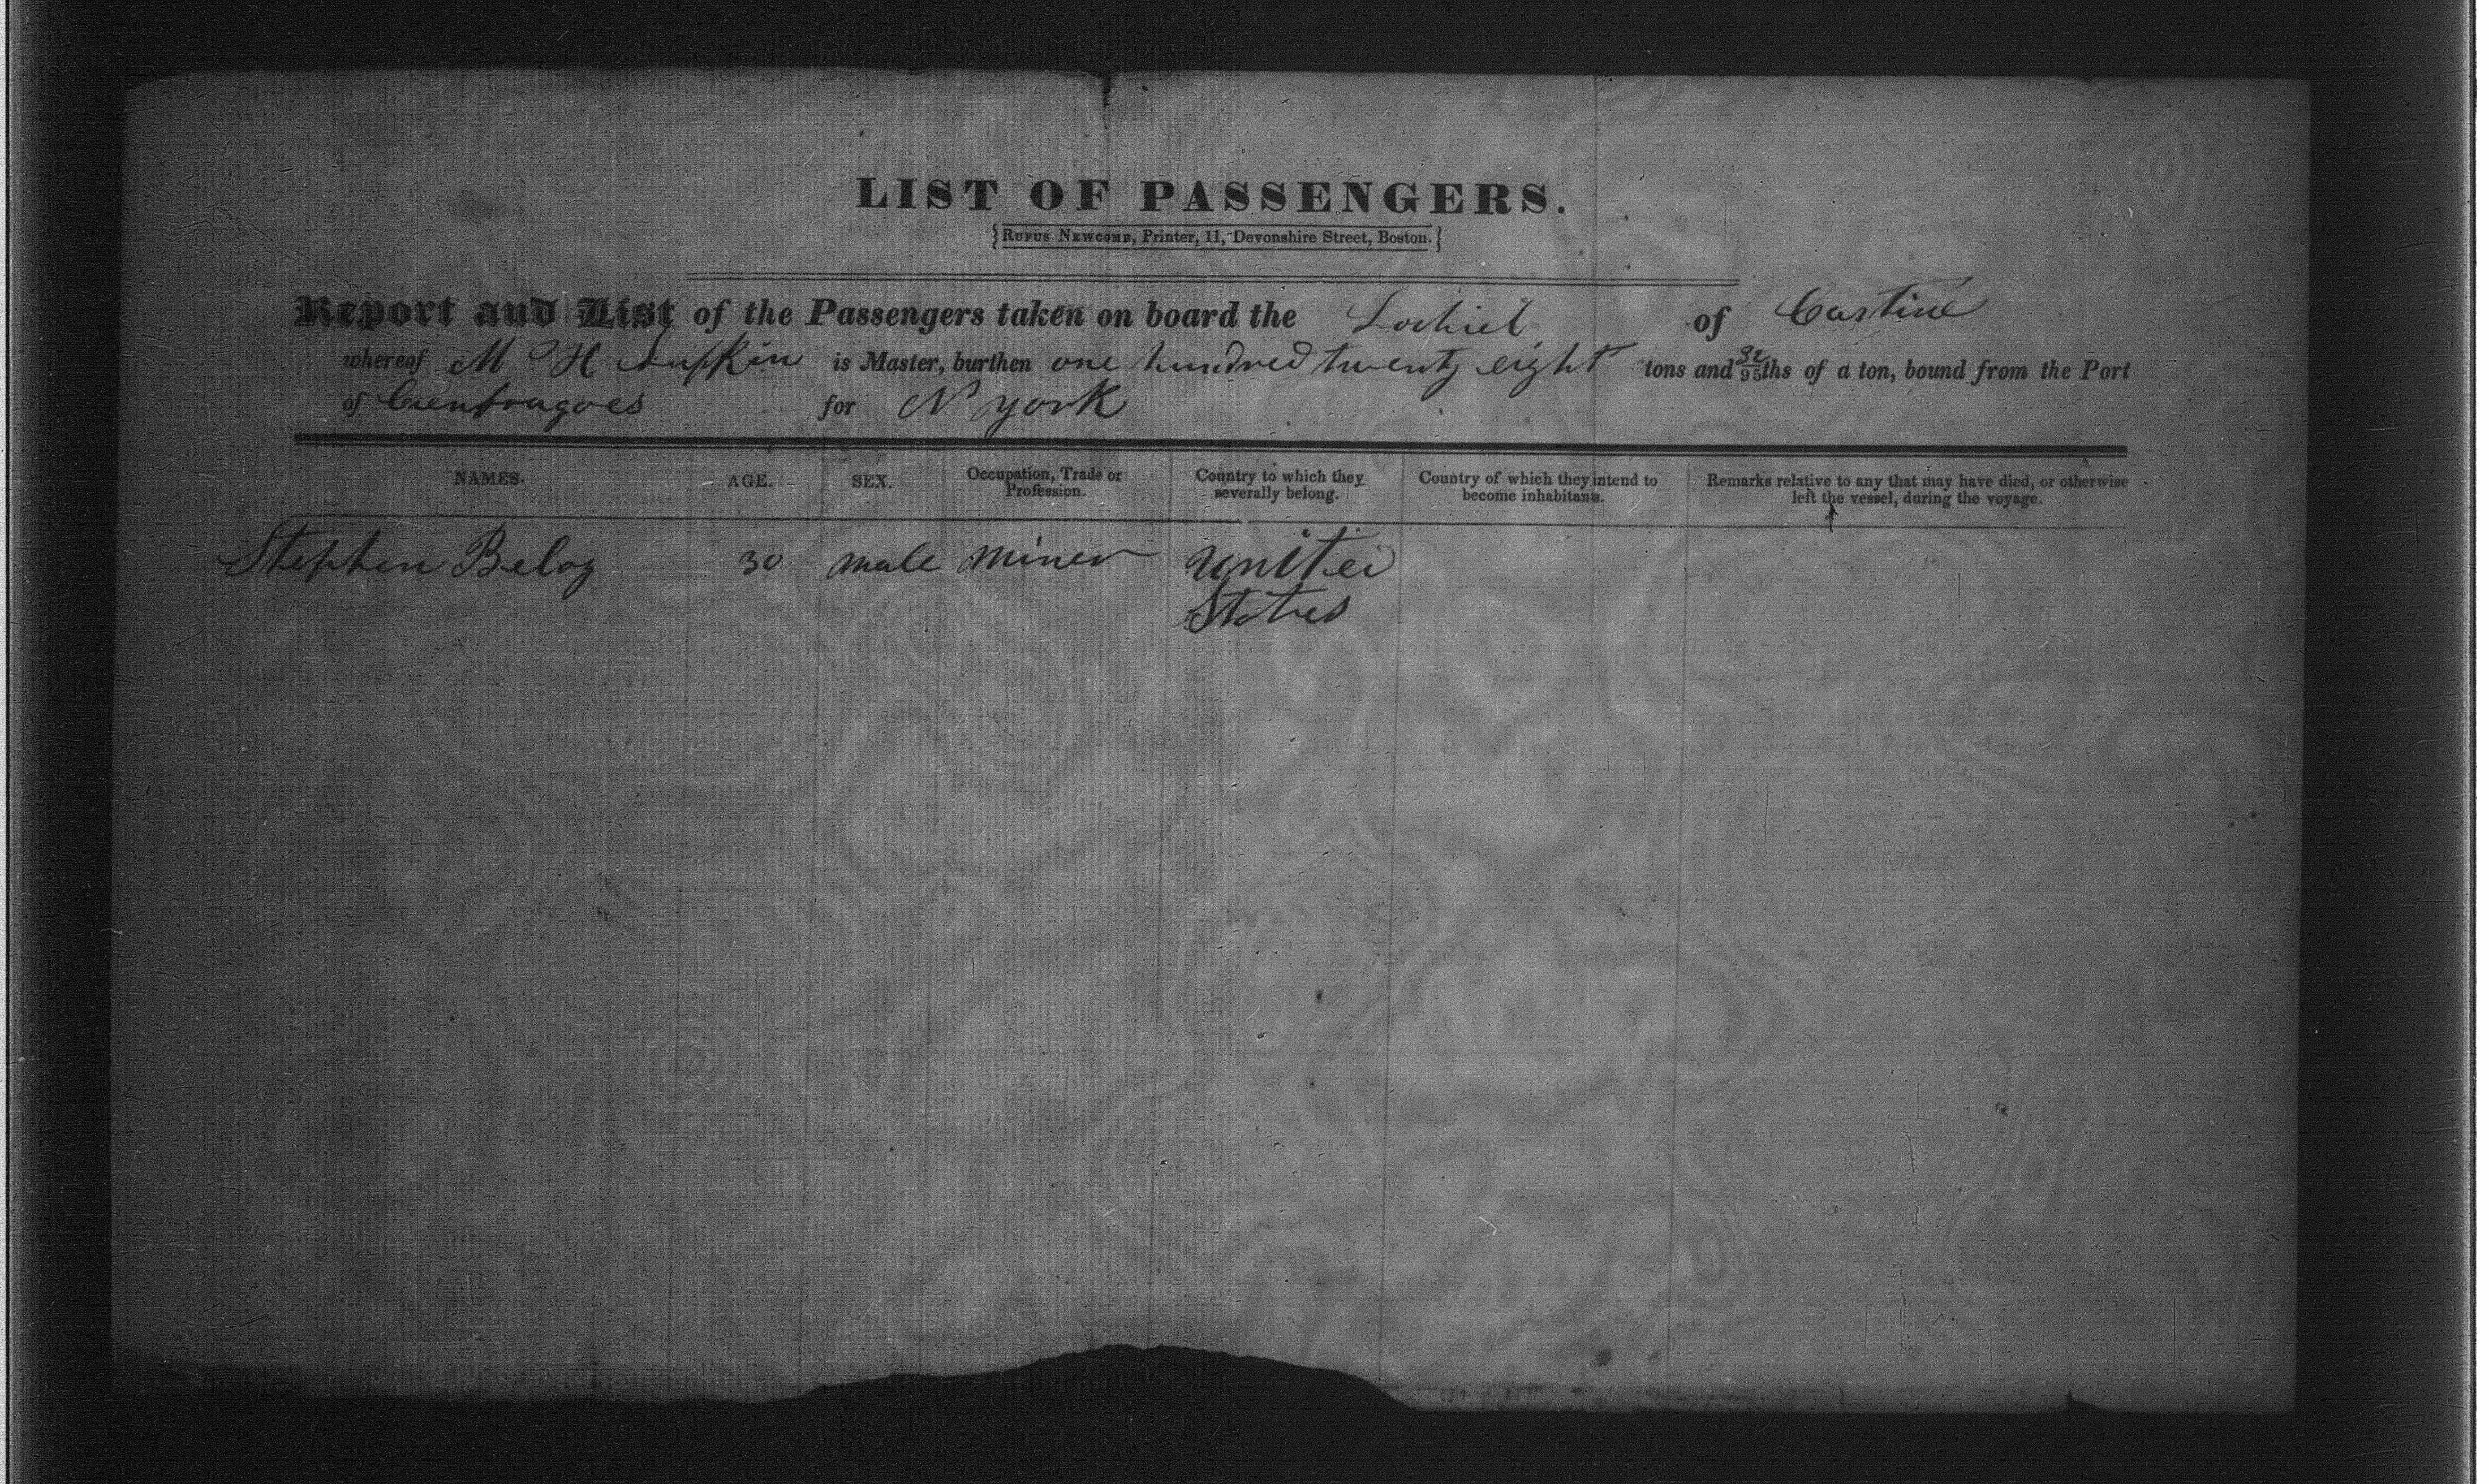 LIST OF PASSENGERS.
{RUFUS NEWCOMB, Printer, 11, Devonshire Street, Boston.}
Report and List of the Passengers taken on board the Lochiel of Castine
whereof M H Lufkin is Master, burthen one hundred twenty eight tons and 32/95ths of a ton, bound from the Port
of Cienfuagoes for N York
NAMES. AGE. SEX. Occupation, Trade or Profession. Country to which they severally belong. Country of which they intend to become inhabitants. Remarks relative to any that may have died, or otherwise left the vessel, during the voyage.
Stephen Beloy 30 male miner United
States